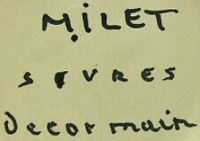 MILET
SEVRES
Decor main